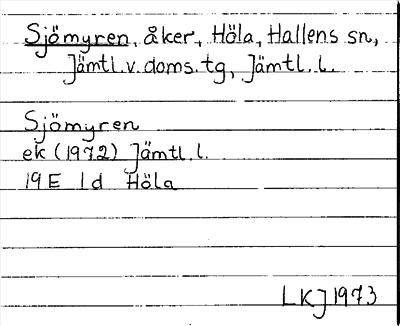 Sjömyren, åker, Höla, Hallens sn,
Jämtl.v.doms.tg, Jämtl.l.
Sjömyren
ek (1972) Jämtl.l.
19E 1d Höla
LKJ 1973